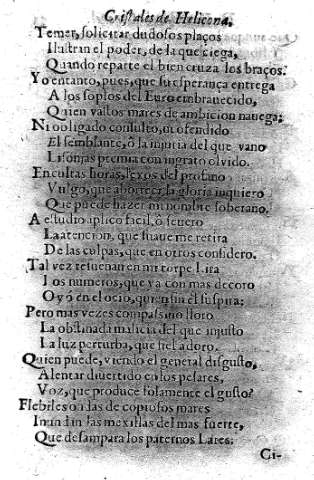 Cristales de Helicona.
Temer, solicitar dudosos plaços
Ilustrin el poder, de la que ciega,
Quando reparte el bien cruza los braços.
Yo entanto, pues, que su esperança entrega
A los soplos del Euro embrauecido,
Quien vastos mares de ambicion nauega;
Ni obligado consulto, ni ofendido
El semblante, ò la injuria del que vano
Lisonjas premia con ingrato oluido.
En cultas horas, lexos del profano
Vulgo, que aborrecer la gloria inquiero
Que puede hazer mi nombre soberano.
A estudio aplico facil, ò seuero
La atencion, que suaue me retira
De las culpas, que en otros considero.
Tal vez resuenan en mi torpe Lira
Los numeros, que ya con mas decoro
Oyó en el ocio, que su suspira;
Pero mas vezes compassiuo lloro
La obstinada malicia del que injusto
La luz perturba, que fiel adoro.
Quien puede, viendo el general disgusto,
Alentar diuertido en los pesares,
Voz, que produce solamente el gusto?
Flebiles ondas de copiosos mares
Inundan las mexillas del mas fuerte,
Que desampara los paternos Lares:
Ci-